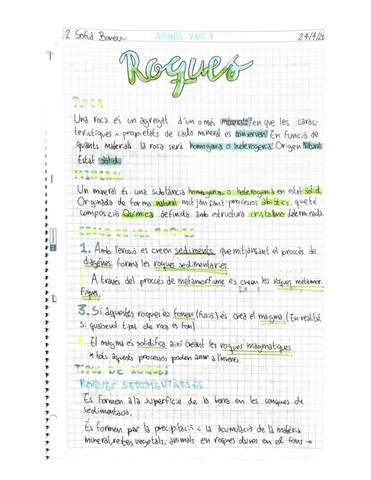 2 Sofia
APUNTS PART 1
24/4/
Roques
ROCA
Una roca és un agregat d'un o més minerals en que les carac-
terístiques i propietats de cada mineral es conserven. En funció de
quants materials la roca serà homogenia o heterogenia. Origen natural
Estat sòlid.
MINERAL
Un mineral és una substància homogenia o heterogenia en estat sòlid.
Originada de forma natural mitjançant processos abiòtics, que té
composició química definida amb estructura cristalina determinada.
CICLE DE LES ROQUES
1. Amb l'erosió es creen sediments que mitjançant el procés de
diagènesi forma les roques sedimentaries
2. A través del procés de metamorfisme es creen les roques metamor-
fiques.
3. Si aquestes roques es fonen (fusió) es crea el magma (En realitat
si qualsevol tipus de roca es fon)
4. El magma es solidifica així creant les roques magmatiques
* tots aquests processos poden anar a l'inversa
TIPUS DE ROQUES
ROQUES SEDIMENTÀRIES
Es formen a la superfície de la terra en les conques de
sedimentació.
Es formen per la precipitació i la acumulació de la matèria
mineral, restes vegetals, animals en roques dures en el fons →